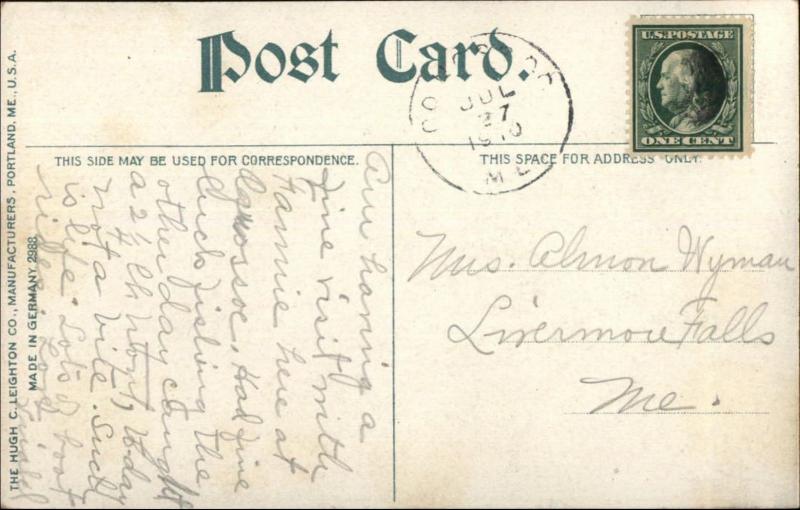 Post Card.
OQUOSSOC
JUL
27
1910
ME
U.S. POSTAGE
ONE CENT
THIS SIDE MAY BE USED FOR CORRESPONDENCE.
THIS SPACE FOR ADDRESS ONLY.
THE HUGH C. LEIGHTON CO., MANUFACTURERS, PORTLAND, ME., U.S.A.
MADE IN GERMANY 2988
Am having a
fine visit with
Fannie here at
Oquossoc. Had fine
luck fishing the
other day caught
a 2½ lb trout, today
not a bite. Such
is life. Lots of boat
rides. Love
Mrs. Almon Wyman
Livermore Falls
Me.